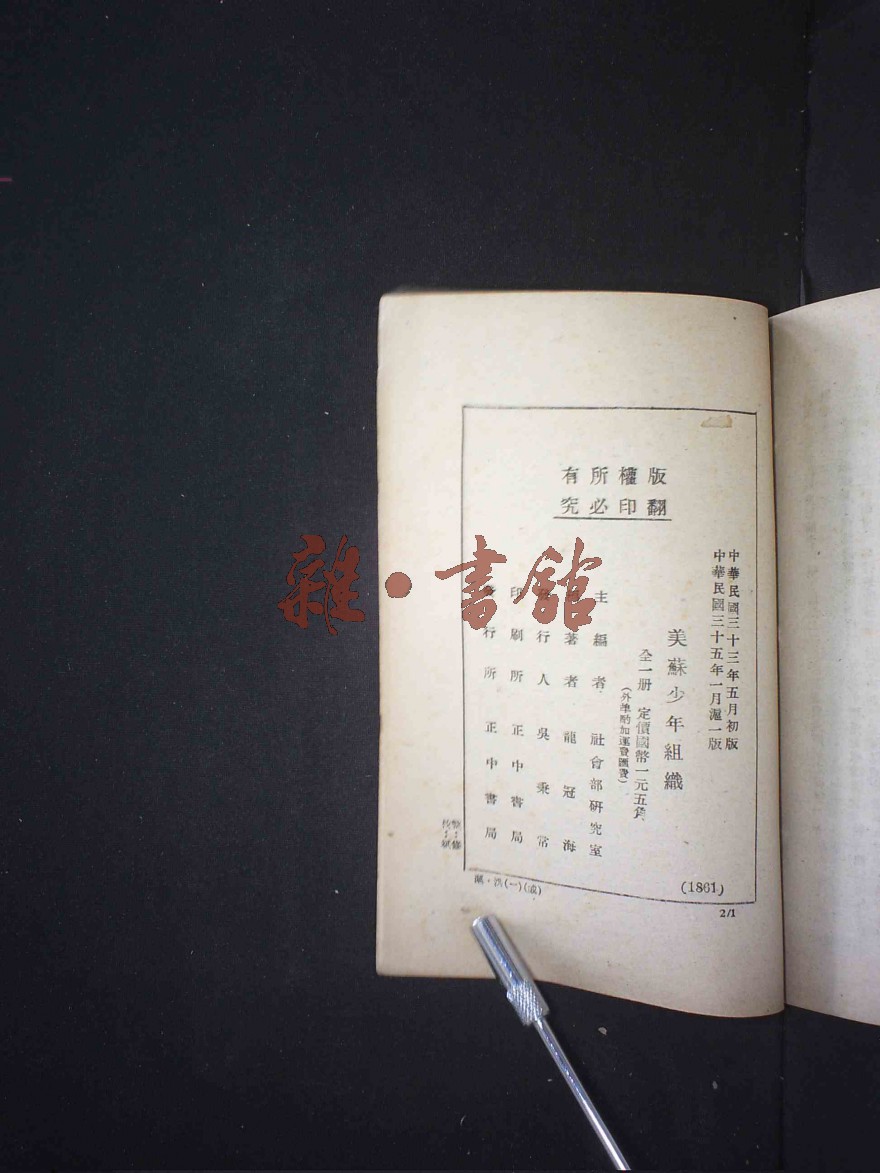 版權所有
翻印必究
中華民國三十三年五月初版
中華民國三十五年一月滬一版
美蘇少年組織
全一册 定價國幣一元五角
(外埠酌加運費匯費)
主編者 社會部研究室
著者 龍冠海
行人 吳秉常
印刷所 正中書局
行所 正中書局
(1861)
2/1
雜·書館